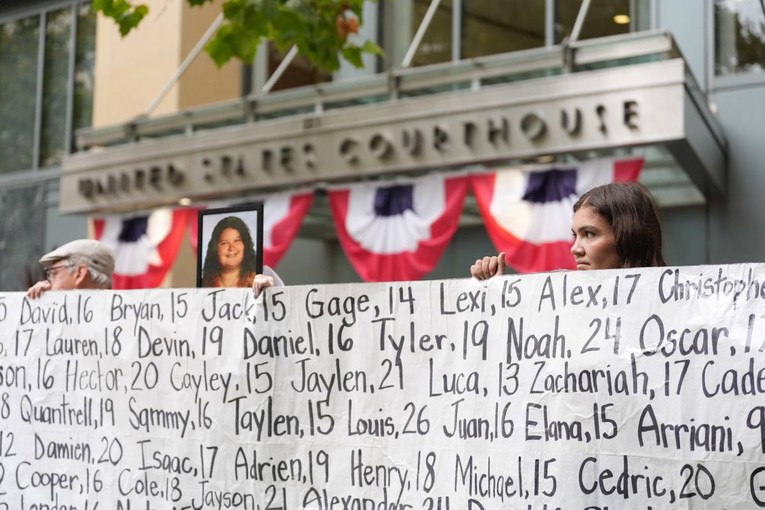 UNITED STATES COURTHOUSE
David, 16 Bryan, 15 Jack, 15 Gage, 14 Lexi, 15 Alex, 17 Christophe
17 Lauren, 18 Devin, 19 Daniel, 16 Tyler, 19 Noah, 24 Oscar, 1
son, 16 Hector, 20 Cayley, 15 Jaylen, 21 Luca, 13 Zachariah, 17 Cade
8 Quantrell, 19 Sammy, 16 Taylen, 15 Louis, 26 Juan, 16 Elana, 15 Arriani, 9
12 Damien, 20 Isaac, 17 Adrien, 19 Henry, 18 Michael, 15 Cedric, 20
2 Cooper, 16 Cole, 18 Jayson, 21 Alexander, 24